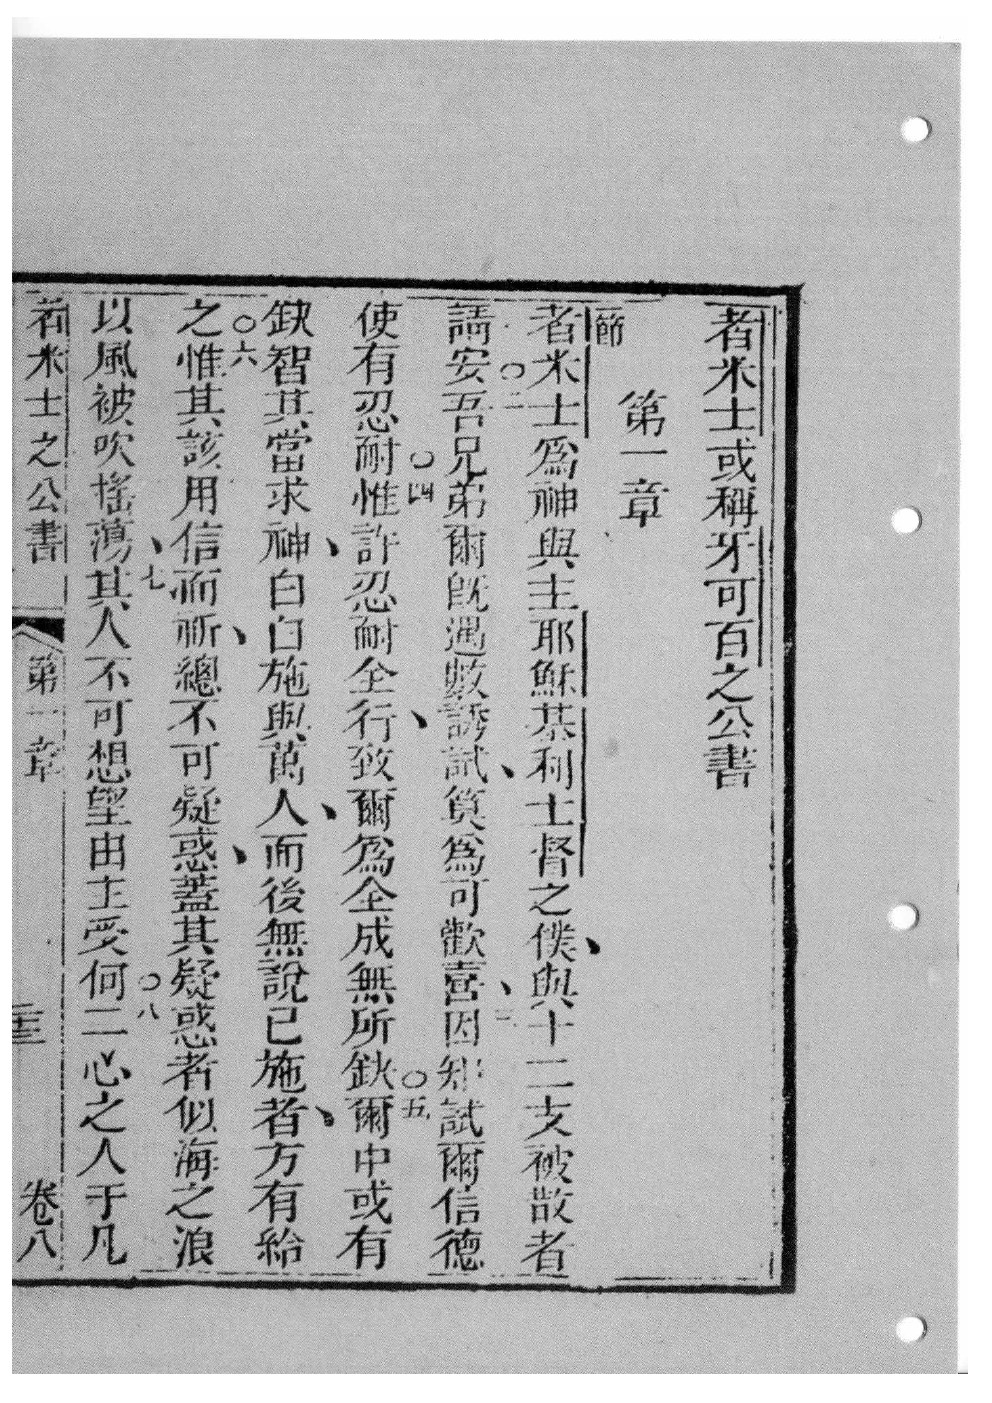 者米士或稱牙可百之公書
第一章
節
者米士為神與主耶穌基利士督之僕、與十二支被散者
○二
請安吾兄弟爾既遇數誘試、算為可歡喜、三因知試爾信德
使有忍耐○四惟許忍耐全行、致爾為全成無所缺○五爾中或有
缺智其當求神、白白施與萬人、而後無說已施者、方有給
之○六惟其該用信而祈、總不可疑惑、蓋其疑惑者似海之浪
以風被吹搖蕩、七其人不可想望由主受何○八二心之人于凡
者米士之公書 第一章 卷八